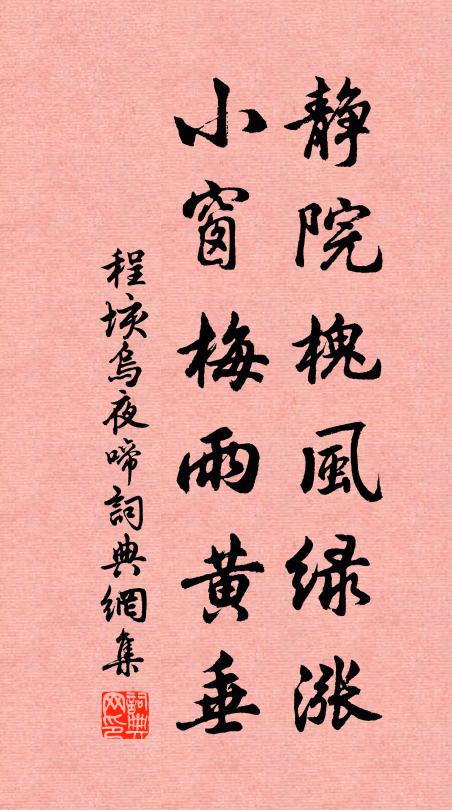 静院槐風绿漲
小窗梅雨黄垂
程垓烏夜啼詞典網集
詞典网印